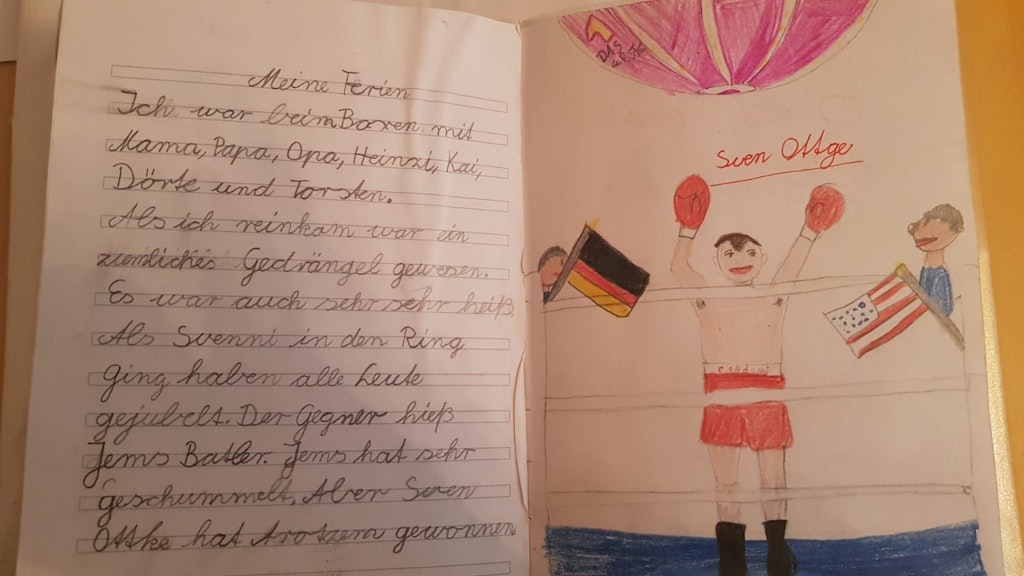 Meine Ferien
Ich war beim Boxen mit
Mama, Papa, Opa, Heinzi, Kai,
Dörte und Torsten.
Als ich reinkam war ein
ziemliches Gedrängel gewesen.
Es war auch sehr sehr heiß
Als Svenni in den Ring
ging haben alle Leute
gejubelt. Der Gegner hieß
Jems Batler. Jems hat sehr
geschummelt. Aber Sven
Ottke hat trotzem gewonnen.
DAS
Sven Ottge